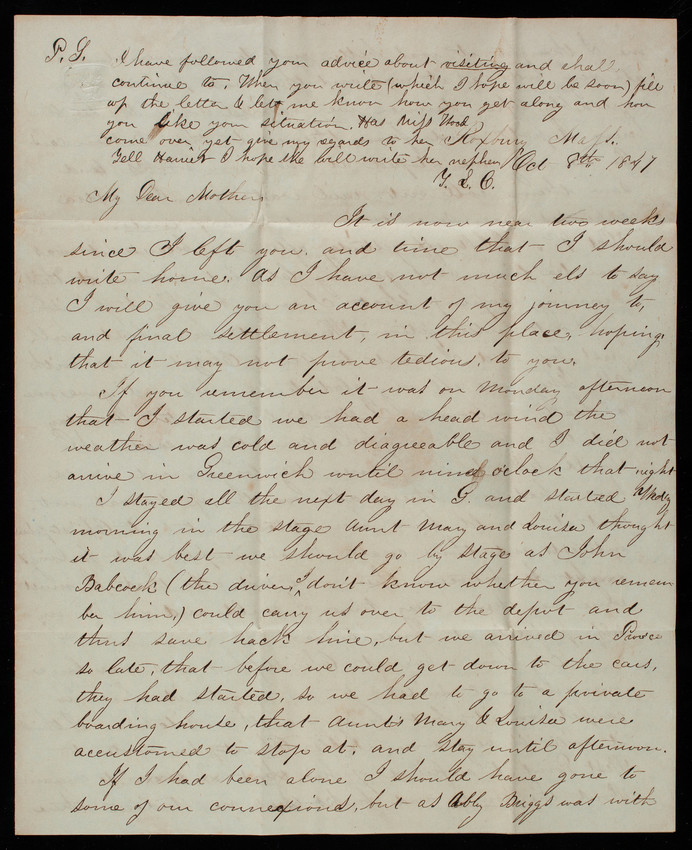 P.S. I have followed your advice about visiting and shall
continue to. When you write (which I hope will be soon) fill
up the letter & let me know how you get along and how
you like your situation. Has Miss
come over yet give my regards to her Roxbury Mass.
Tell Harriet I hope she will write her nephew Oct 8th 1847
T. L. C.
My Dear Mother,
It is now near two weeks
since I left you. and time that I should
write home. As I have not much els to say
I will give you an account of my journey to,
and final settlement, in this place, hoping
that it may not prove tedious, to you,
If you remember it was on Monday afternoon
that I started we had a head wind the
weather was cold and diagreeable and I did not
arrive in Greenwich until nine oclock that night
I stayed all the next day in G. and started
morning in the stage Aunt Mary and Louisa thought
it was best we should go by stage as John
Babcock (the driver, I don't know whether you remem
ber him,) could carry us over to the depot and
thus save hack hire, but we arrived in
so late, that before we could get down to the cars,
they had started, so we had to go to a private
boarding house, that Aunt's Mary & Louisa were
accustomed to stop at, and stay until afternoon.
If I had been alone I should have gone to
some of our connexions, but as Abby Briggs was with